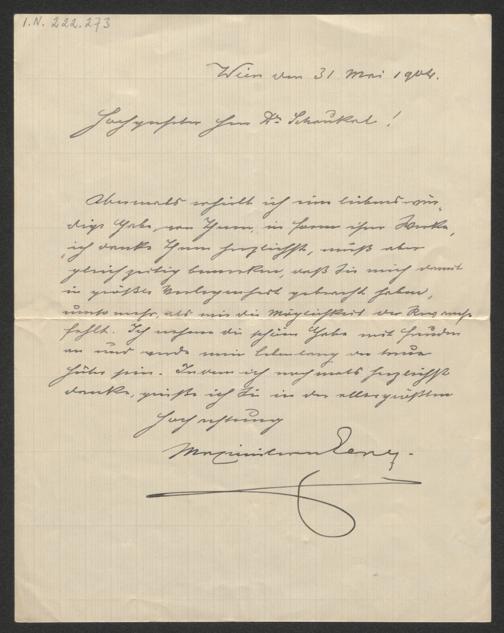 I.N. 222.273
Wien den 31 Mai 1904.
Hochgeehrter Herr Dr. Schaukal!
Abermals erhielt ich eine liebenswür-
dige Gabe von Ihnen, in Form ihrer Werke,
ich danke Ihnen herzlichst, muß aber
gleichzeitig bemerken, daß Sie mich damit
in größte Verlegenheit gebracht haben,
umsomehr, als mir die Möglichkeit der Revanche
fehlt. Ich nehme die schöne Gabe mit Freuden
an und werde mein lebenlang der treue
Hüter sein. Indem ich nochmals herzlichst
danke, grüße ich Sie in der allergrößten
Hochachtung
Maximilian